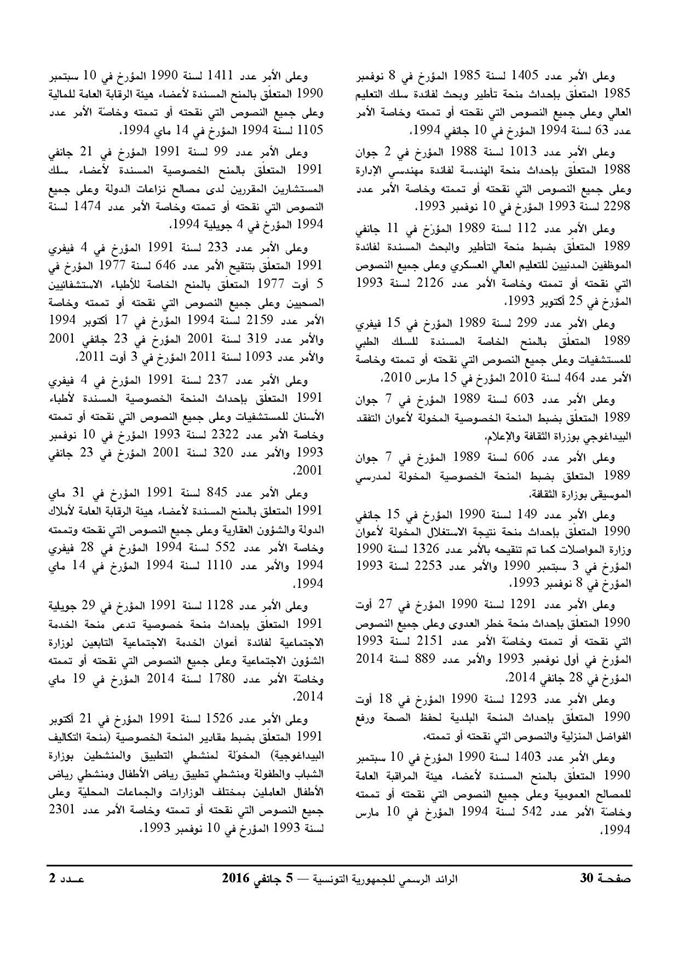 وعلى الأمر عدد 1405 لسنة 1985 المؤرخ في 8 نوفمبر
1985 المتعلّق بإحداث منحة تأطير وبحث لفائدة سلك التعليم
العالي وعلى جميع النصوص التي نقحته أو تممته وخاصة الأمر
عدد 63 لسنة 1994 المؤرخ في 10 جانفي 1994،
وعلى الأمر عدد 1013 لسنة 1988 المؤرخ في 2 جوان
1988 المتعلّق بإحداث منحة الهندسة لفائدة مهندسي الإدارة
وعلى جميع النصوص التي نقحته أو تممته وخاصة الأمر عدد
2298 لسنة 1993 المؤرخ في 10 نوفمبر 1993،
وعلى الأمر عدد 112 لسنة 1989 المؤرّخ في 11 جانفي
1989 المتعلّق بضبط منحة التأطير والبحث المسندة لفائدة
الموظفين المدنيين للتعليم العالي العسكري وعلى جميع النصوص
التي نقحته أو تممته وخاصة الأمر عدد 2126 لسنة 1993
المؤرخ في 25 أكتوبر 1993،
وعلى الأمر عدد 299 لسنة 1989 المؤرخ في 15 فيفري
1989 المتعلّق بالمنح الخاصة المسندة للسلك الطبي
للمستشفيات وعلى جميع النصوص التي نقحته أو تممته وخاصة
الأمر عدد 464 لسنة 2010 المؤرخ في 15 مارس 2010،
وعلى الأمر عدد 603 لسنة 1989 المؤرخ في 7 جوان
1989 المتعلّق بضبط المنحة الخصوصية المخولة لأعوان التفقد
البيداغوجي بوزراة الثقافة والإعلام،
وعلى الأمر عدد 606 لسنة 1989 المؤرخ في 7 جوان
1989 المتعلق بضبط المنحة الخصوصية المخولة لمدرسي
الموسيقى بوزارة الثقافة،
وعلى الأمر عدد 149 لسنة 1990 المؤرخ في 15 جانفي
1990 المتعلّق بإحداث منحة نتيجة الاستغلال المخولة لأعوان
وزارة المواصلات كما تم تنقيحه بالأمر عدد 1326 لسنة 1990
المؤرخ في 3 سبتمبر 1990 والأمر عدد 2253 لسنة 1993
المؤرخ في 8 نوفمبر 1993،
وعلى الأمر عدد 1291 لسنة 1990 المؤرخ في 27 أوت
1990 المتعلّق بإحداث منحة خطر العدوى وعلى جميع النصوص
التي نقحته أو تممته وخاصّة الأمر عدد 2151 لسنة 1993
المؤرخ في أول نوفمبر 1993 والأمر عدد 889 لسنة 2014
المؤرخ في 28 جانفي 2014،
وعلى الأمر عدد 1293 لسنة 1990 المؤرخ في 18 أوت
1990 المتعلّق بإحداث المنحة البلدية لحفظ الصحة ورفع
الفواضل المنزلية والنصوص التي نقحته أو تممته،
وعلى الأمر عدد 1403 لسنة 1990 المؤرخ في 10 سبتمبر
1990 المتعلّق بالمنح المسندة لأعضاء هيئة المراقبة العامة
للمصالح العمومية وعلى جميع النصوص التي نقحته أو تممته
وخاصّة الأمر عدد 542 لسنة 1994 المؤرخ في 10 مارس
1994،
وعلى الأمر عدد 1411 لسنة 1990 المؤرخ في 10 سبتمبر
1990 المتعلّق بالمنح المسندة لأعضاء هيئة الرقابة العامة للمالية
وعلى جميع النصوص التي نقحته أو تممته وخاصّة الأمر عدد
1105 لسنة 1994 المؤرخ في 14 ماي 1994،
وعلى الأمر عدد 99 لسنة 1991 المؤرخ في 21 جانفي
1991 المتعلّق بالمنح الخصوصية المسندة لأعضاء سلك
المستشارين المقررين لدى مصالح نزاعات الدولة وعلى جميع
النصوص التي نقحته أو تممته وخاصة الأمر عدد 1474 لسنة
1994 المؤرخ في 4 جويلية 1994،
وعلى الأمر عدد 233 لسنة 1991 المؤرخ في 4 فيفري
1991 المتعلّق بتنقيح الأمر عدد 646 لسنة 1977 المؤرخ في
5 أوت 1977 المتعلّق بالمنح الخاصة للأطباء الاستشفائيين
الصحيين وعلى جميع النصوص التي نقحته أو تممته وخاصة
الأمر عدد 2159 لسنة 1994 المؤرخ في 17 أكتوبر 1994
والأمر عدد 319 لسنة 2001 المؤرخ في 23 جانفي 2001
والأمر عدد 1093 لسنة 2011 المؤرخ في 3 أوت 2011،
وعلى الأمر عدد 237 لسنة 1991 المؤرخ في 4 فيفري
1991 المتعلّق بإحداث المنحة الخصوصية المسندة لأطباء
الأسنان للمستشفيات وعلى جميع النصوص التي نقحته أو تممته
وخاصة الأمر عدد 2322 لسنة 1993 المؤرخ في 10 نوفمبر
1993 والأمر عدد 320 لسنة 2001 المؤرخ في 23 جانفي
2001،
وعلى الأمر عدد 845 لسنة 1991 المؤرخ في 31 ماي
1991 المتعلق بالمنح المسندة لأعضاء هيئة الرقابة العامة لأملاك
الدولة والشؤون العقارية وعلى جميع النصوص التي نقحته وتممته
وخاصة الأمر عدد 552 لسنة 1994 المؤرخ في 28 فيفري
1994 والأمر عدد 1110 لسنة 1994 المؤرخ في 14 ماي
1994،
وعلى الأمر عدد 1128 لسنة 1991 المؤرخ في 29 جويلية
1991 المتعلّق بإحداث منحة خصوصية تدعى منحة الخدمة
الاجتماعية لفائدة أعوان الخدمة الاجتماعية التابعين لوزارة
الشؤون الاجتماعية وعلى جميع النصوص التي نقحته أو تممته
وخاصّة الأمر عدد 1780 لسنة 2014 المؤرخ في 19 ماي
2014،
وعلى الأمر عدد 1526 لسنة 1991 المؤرخ في 21 أكتوبر
1991 المتعلّق بضبط مقادير المنحة الخصوصية (منحة التكاليف
البيداغوجية) المخوّلة لمنشطي التطبيق والمنشطين بوزارة
الشباب والطفولة ومنشطي تطبيق رياض الأطفال ومنشطي رياض
الأطفال العاملين بمختلف الوزارات والجماعات المحليّة وعلى
جميع النصوص التي نقحته أو تممته وخاصة الأمر عدد 2301
لسنة 1993 المؤرخ في 10 نوفمبر 1993،
صفحـة 30
الرائد الرسمي للجمهورية التونسية — 5 جانفي 2016
عــدد 2